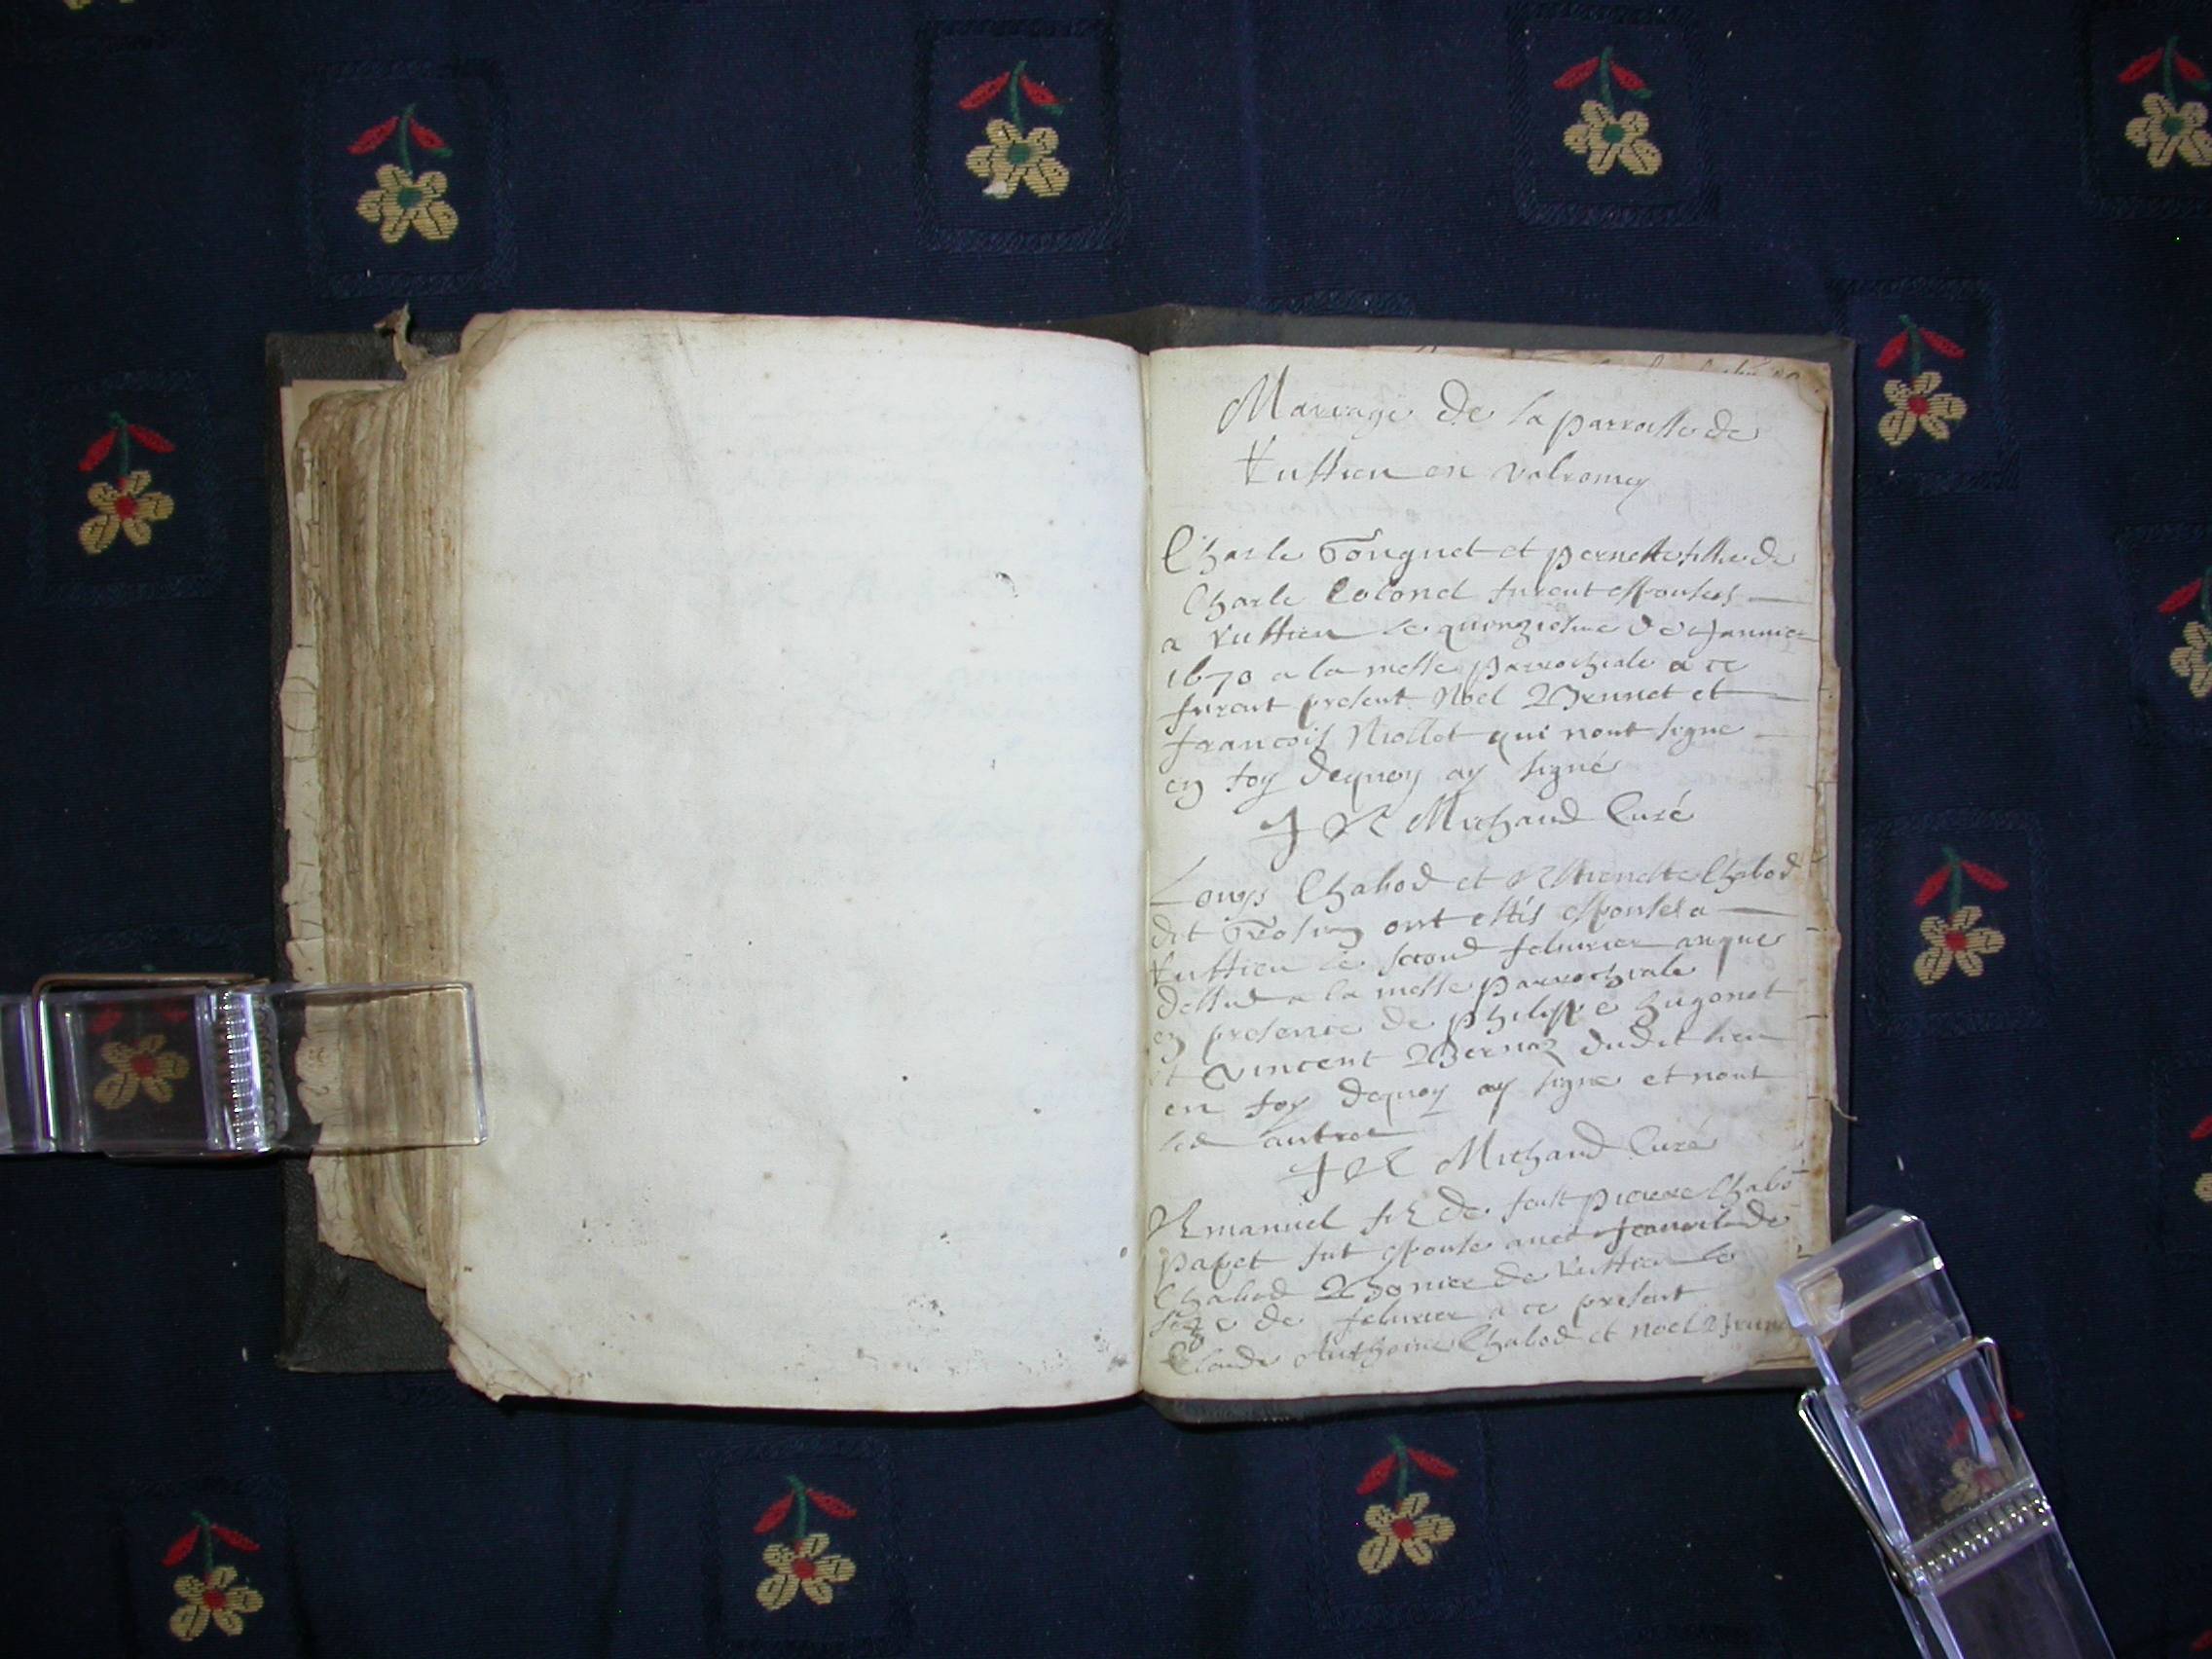 Mariage de la parroisse de
Vussieu en valromey
Charle et pernette fillie de
Charle Colond furent espouses
a Vussieu le quinziesme de Jannier
1670 a la messe parrochiale a ce
furent present Noel Brunet et
francois Niollet qui nont signe
en foy dequoy ay signé
Michaud Curé
Louys Chabod et Estienette Chabod
dit ont estés espouses a
Vussieu le second feburier anque
dessus a la messe parrochiale
en presence de philippe hugonet
et Vincent Bernaz dudit lieu
en foy dequoy ay signe et nont
les autres
Michaud Curé
Emanuel filz de feust pierre Chabo
papet fut espouse auec
Chabod de Vussieu le
seze de feburier a ce present
Claude Anthoine Chabod et noel Brune